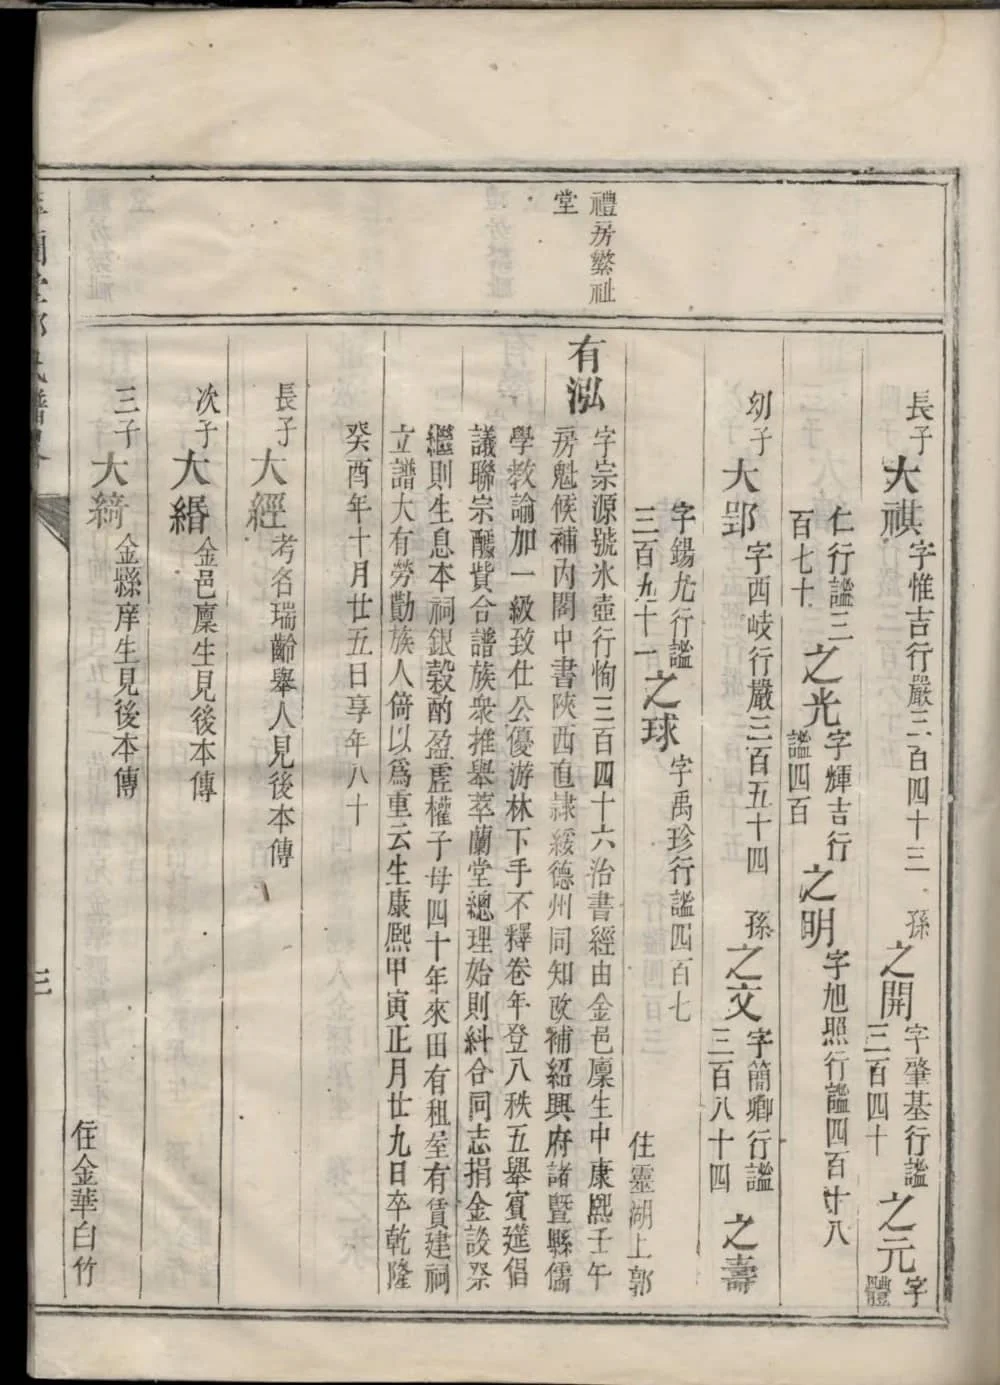 禮房繁祉
堂
長子大祺字惟吉行嚴三百四十三 孫之開字肇基行謐三百四十之元字體
仁行謐三百七十之光字輝吉行謐四百之明字旭照行謐四百廿八
幼子大郢字西岐行嚴三百五十四 孫之文字簡卿行謐三百八十四 之壽
字錫尤行謐三百九十一之球字禹珍行謐四百七 住靈湖上郭
有泓字宗源號氷壺行恂三百四十六治書經由金邑廩生中康熙壬午
房魁候補內閣中書陝西直隸綏德州同知改補紹興府諸曁縣儒
學教論加一級致仕公優游林下手不釋卷年登八秩五舉賓筵倡
議聯宗醵貲合譜族衆推舉萃蘭堂總理始則糾合同志捐金設祭
繼則生息本祠銀穀酌盈虛權子母四十年來田有租至有賃建祠
立譜大有勞勩族人倚以爲重云生康熙甲寅正月廿九日卒乾隆
癸酉年十月廿五日享年八十
長子大經考名瑞齡舉人見後本傳
次子大緡金邑廩生見後本傳
三子大綺金縣庠生見後本傳 住金華白竹
三